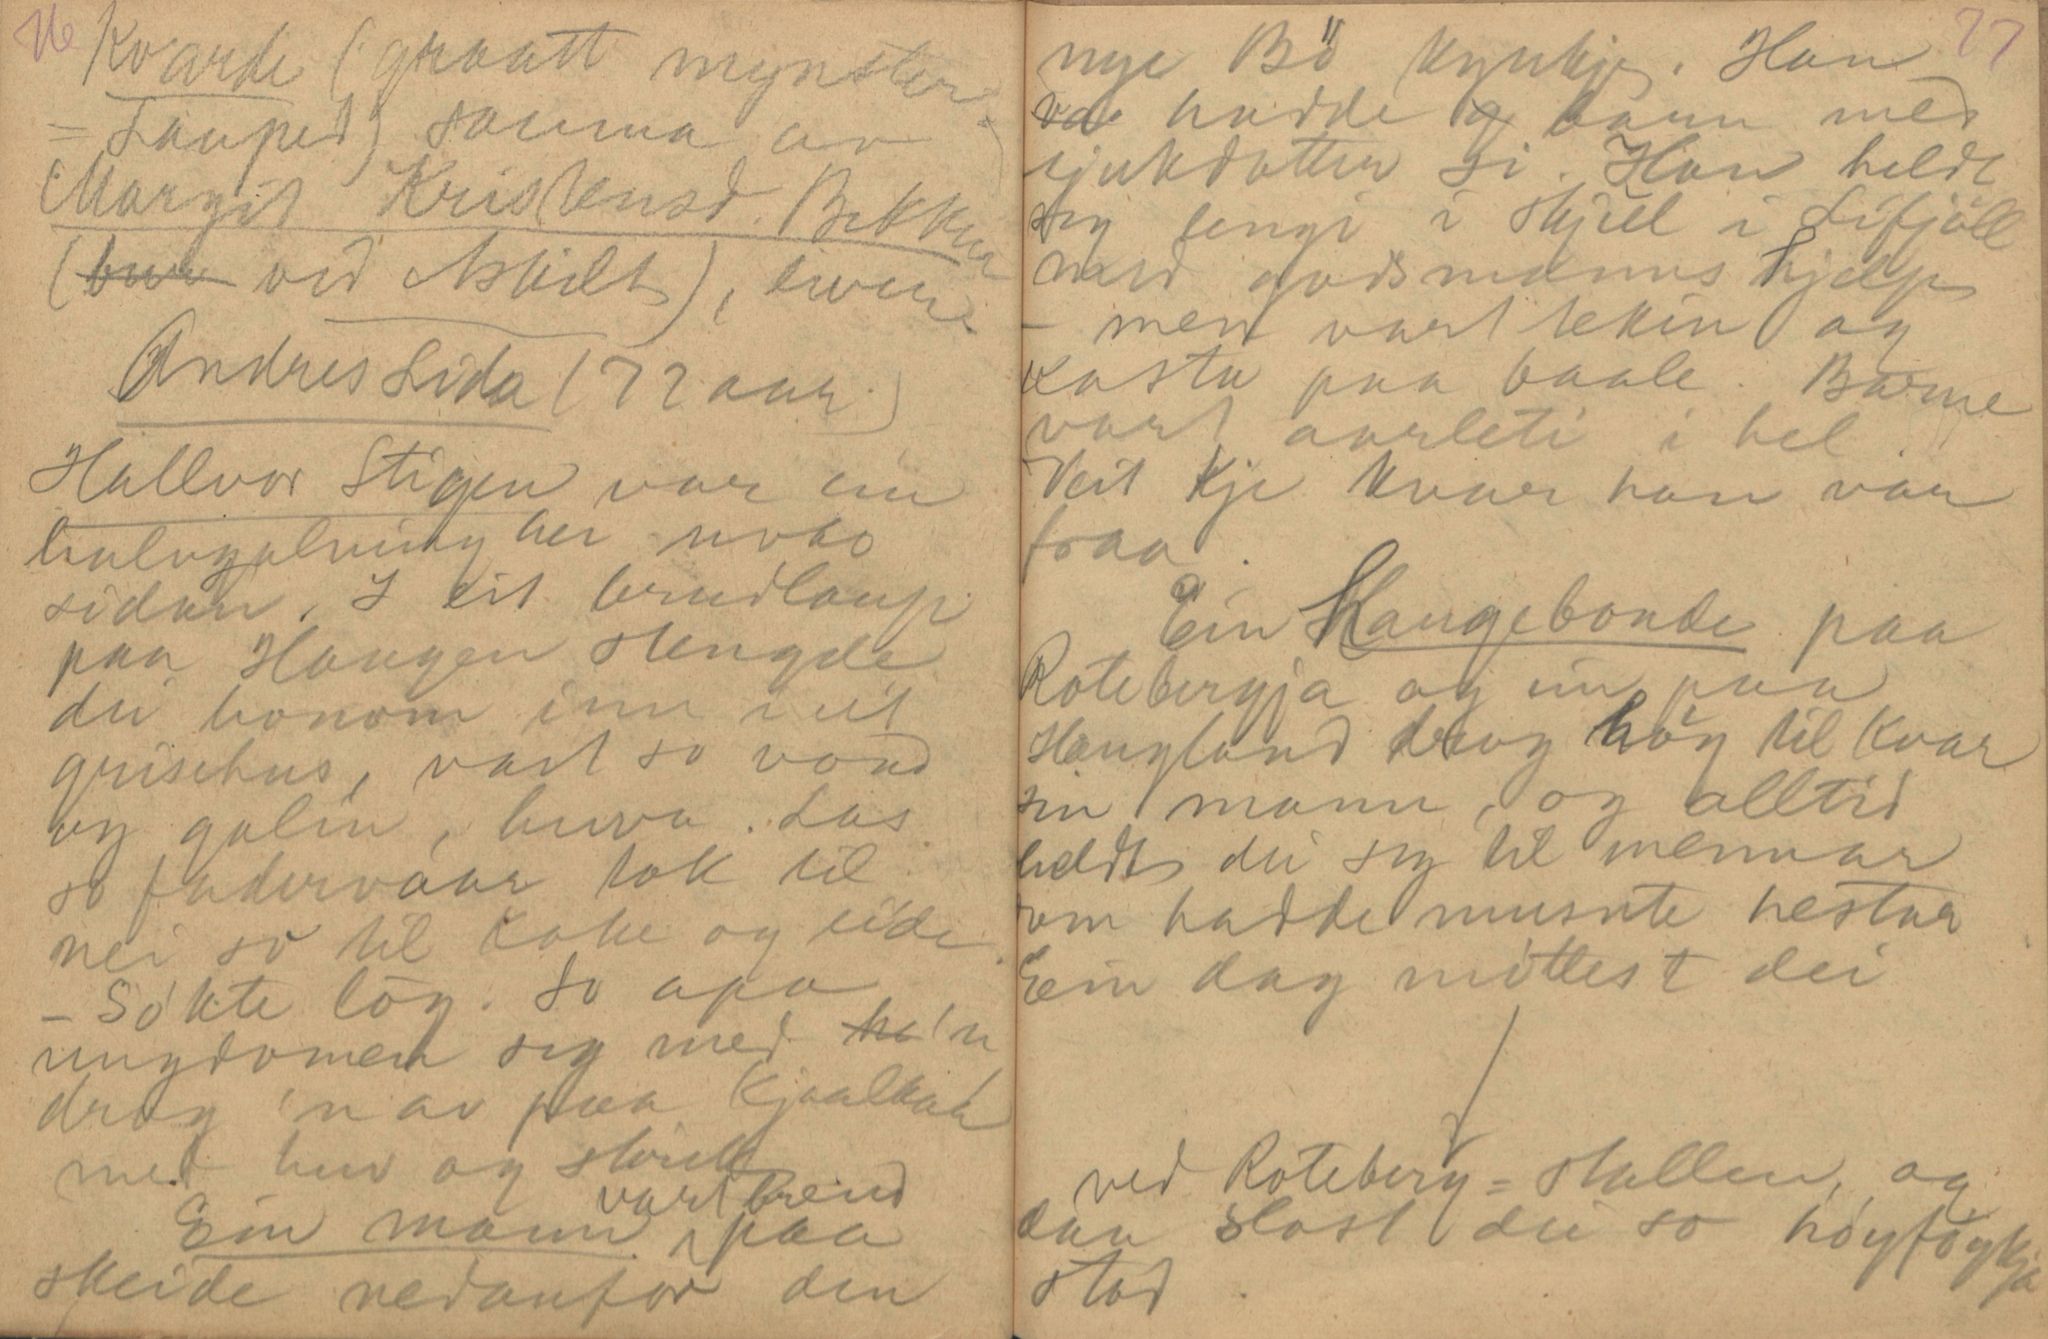 76
Kvarde (graatt mynster
= Lauped) sauma av
Margit Kristensd. Bekken
(bur vid Askilt),
Andres Lida (72 aar)
Hallvor Stigen var ein
halvgalning her noko
sidan. I eit brudlaup
paa Haugen stengde
dei honom inn i eit
grisehus, vart so vond
og galin, buva. Las
so fadervaar tok til
nei so til koke og
- Sökte lög. So apa
ungdomen seg med ha'n
drog 'n av paa kjaalkah
med huv og skrik
Ein mann vart brend paa
skeide nedanfor den
77
nye Bö kyrkje. Han
va hadde og barn med
sjukdotter si. Han heldt
seg lengi i skjul i Lifjöll
med godsmanns hjelp
- men vart tekin og
kasta paa baale. Barne
vart aarleti i hel.
Veit kje kvar han var
fraa.
Ein Haugebonde paa
Rotebergja og ein paa
Haugland drog höy til kvar
sin mann, og alltid
heldt dei seg til mennar
som hadde musute hestar
Ein dag möttest dei
ved Roteberg=stallen, og
daa slost dei so höyföykja
stod.